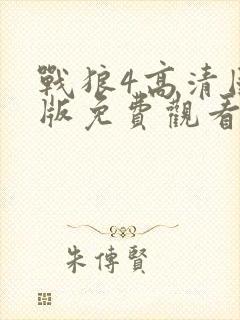 戰狼4高清
版免費觀看
朱傳賢